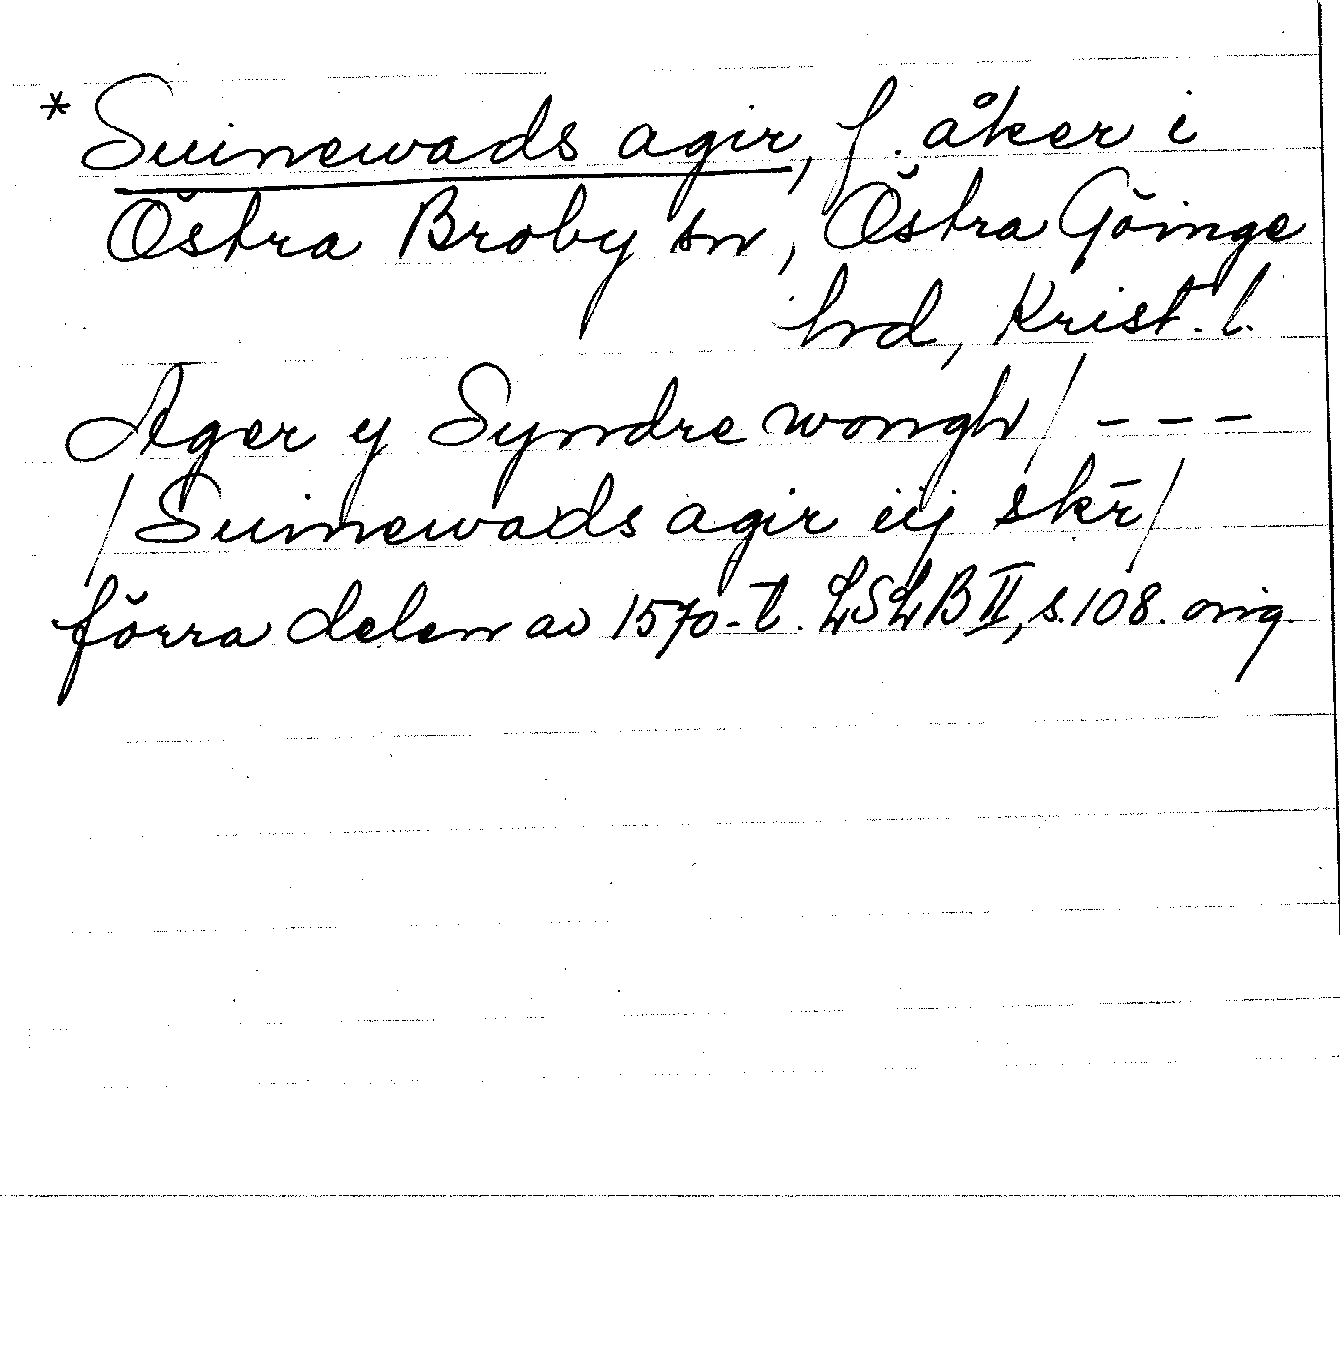 * Suinewads agir, f. åker i
Östra Broby sn, Östra Göinge
hrd, Krist. l.
Ager y Syndre wongh/ – – –
/Suinewads agir iij skr̄/
förra delen av 1570-t. LSLB II, s. 108. orig.